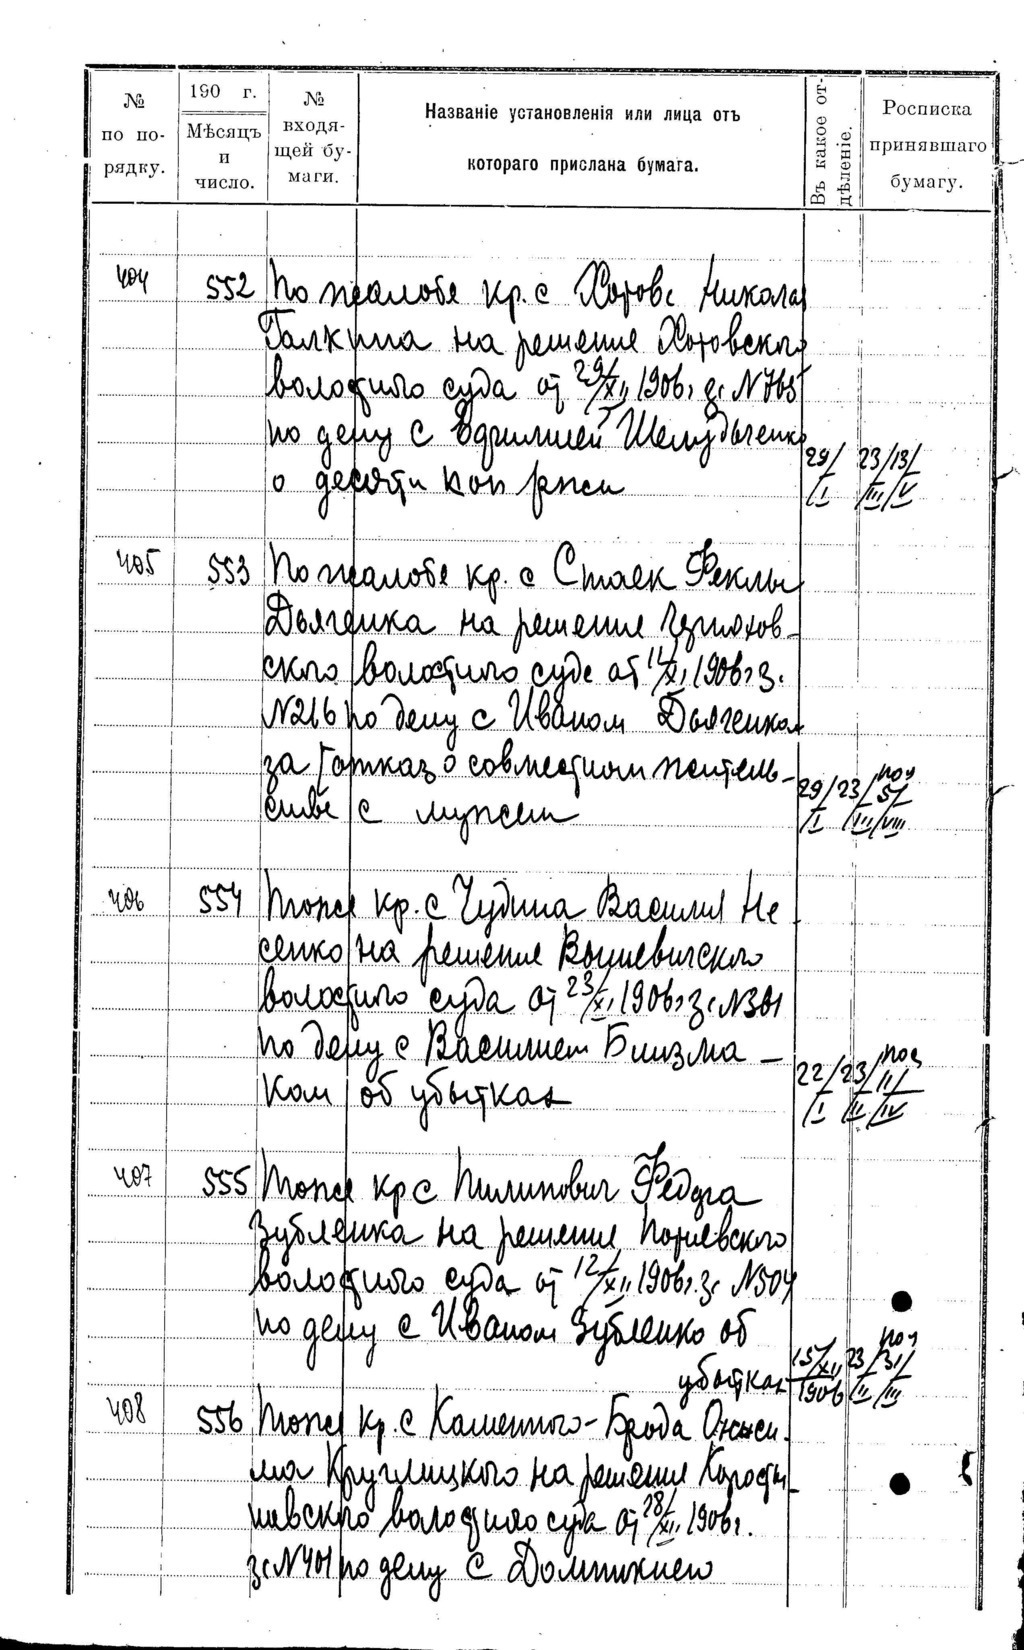 №
по по-
рядку.
190 г.
Мѣсяцъ
и
число.
№
входя-
щей бу-
маги.
Названіе установленія или лица отъ
котораго прислана бумага.
Въ какое от-
дѣленіе.
Росписка
принявшаго
бумагу.
404 552 По жалобе кр. с Хотов Николая
Галкина на решение Хотовского
волостного суда от 29/XII 1906 г за N765
по делу с
о десяти коп ржи
29/I 23/III 13/V
405 553 По жалобе кр. с Ставк Феклы
Дьяченка на решение Черняхов-
ского волостного суда от 14/XI 1906 г за
N216 по делу с Иваном Дьяченком
за отказ о совместном житель-
стве с мужем
29/I 23/III 5/VIII
406 554 Тоже кр. с Чудина Василия Не
сенко на решение Вышевичского
волостного суда от 23/XI 1906 г за N301
по делу с Василием Близма-
ком об убытках
22/I 23/II 11/IV
407 555 Тоже кр с Пилипович Федора
Зубленка на решение Потиевского
волостного суда от 12/XII 1906 г. за N504
по делу с Иваном Зубленко об
убытках
15/XII 1906 23/II 31/III
408 556 Тоже кр. с Каменного-Брода Ониси-
ма Круглицкого на решение Коросты
шевского волостного суда от 28/XII 1906 г.
за N401 по делу с